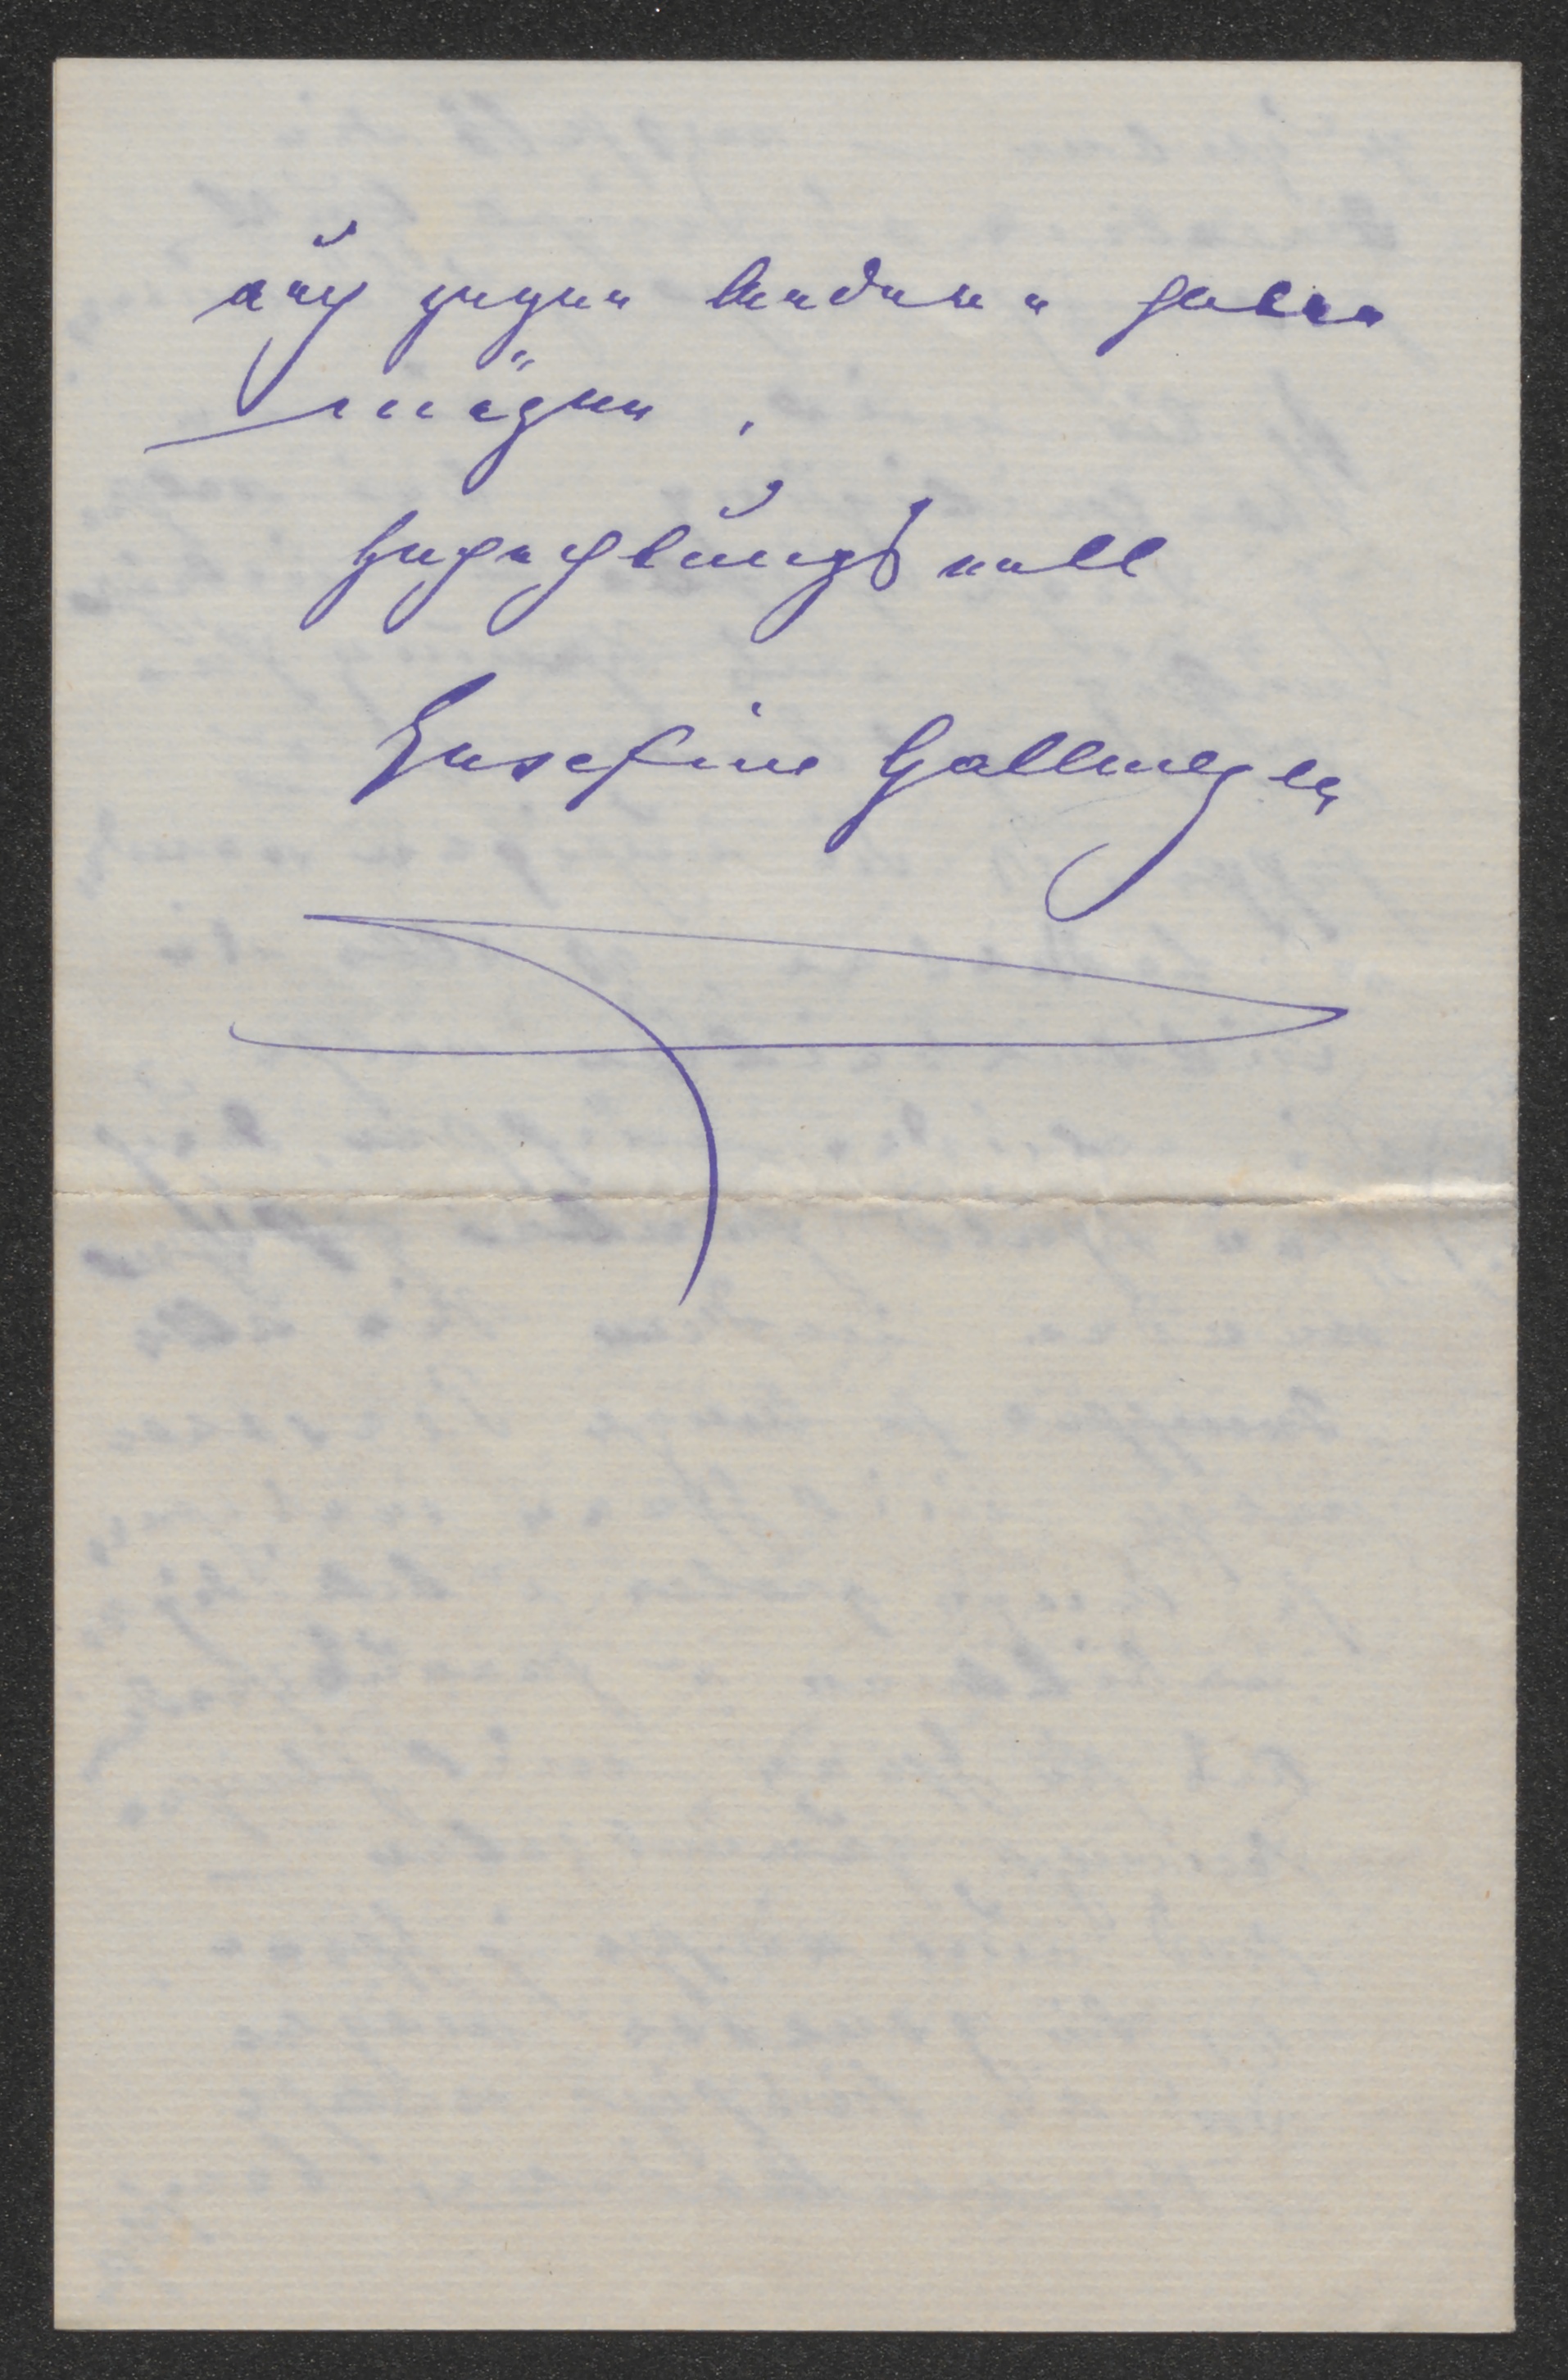 auch gegen Andere haben
mögen.
Hochachtungsvoll
Josefine Gallmeyer